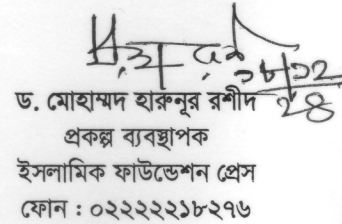 ড. মোহাম্মদ হারুনূর রশীদ
প্রকল্প ব্যবস্থাপক
ইসলামিক ফাউন্ডেশন প্রেস
ফোন : ০২২২২২১৮২৭৬